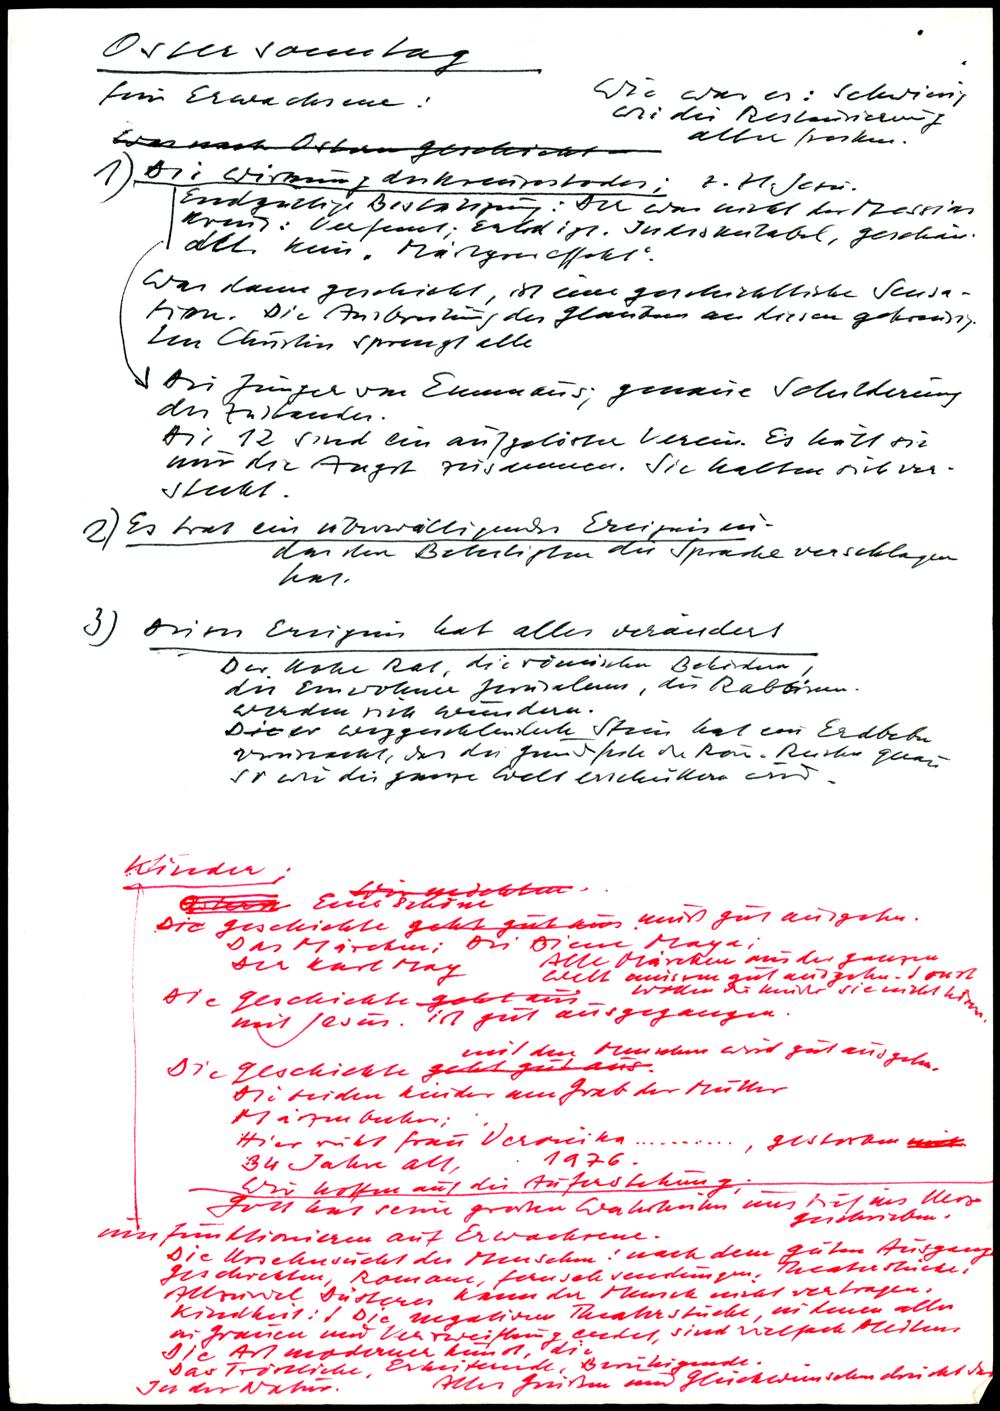 Ostersonntag
für Erwachsene:
Wie war es: Schwierig
wie die Restaurierung
alter Fresken.
Was nach Ostern geschieht
1) Die Wirkung des Kreuzestodes; z. H. Jesu.
Endgültige Bestätigung: Der war nicht der Messias
Kreuz: Verfemt; Erledigt. Indiskutabel,
Kein "Märtyrereffekt".
Was dann geschieht, ist eine geschichtliche Sensa-
tion. Die Ausbreitung des Glaubens an diesen gekreuzig-
ten Christus sprengt alle
Die Jünger von Emmaus; genaue Schilderung
des Zustandes.
Die 12 sind ein aufgelöster Verein. Es hält sie
nur die Angst zusammen. Sie halten sich ver-
steckt.
2) Es trat ein überwältigendes Ereignis ein-
das den Beteiligten die Sprache verschlagen
hat.
3) Dieses Ereignis hat alles verändert
Der Hohe Rat, die römischen Behörden,
die Einwohner Jerusalems, die Rabbinen.
werden sich wundern.
Dieser weggeschleuderte Stein hat ein Erdbeben
verursacht, das die Grundfeste des Röm. Reiches genau
so wie die ganze Welt erschüttern wird.
Kinder:
Wir möchten
Ostern Eine Schöne
Die Geschichte geht gut aus muß gut ausgehn.
Das Märchen; Die Biene Maya;
Der Karl May
Alle Märchen aus der ganzen
Welt müssen gut ausgehn. Sonst
wollen die Kinder sie nicht hören.
Die Geschichte geht aus
mit Jesus. ist gut ausgegangen.
mit den Menschen wird gut ausgehn.
Die Geschichte geht gut aus
Die beiden Kinder am Grab der Mutter
Märzenbecher;
Hier ruht Frau Veronika .........., gestorben mit
34 Jahre alt, 1976.
Wir hoffen auf die Auferstehung.
Gott hat seine großen Wahrheiten uns tief ins Herz
geschrieben.
umfunktionieren auf Erwachsene.
Die Ursehnsucht des Menschen: nach dem guten Ausgang
Geschichten, Romane, Fernsehsendungen, Theaterstücke;
Allzuviel Düsteres kann der Mensch nicht vertragen.
Kindheit:! Die negativen Theaterstücke, in denen alles
in Grauen und Verzweiflung endet, sind vielfach
Die Art moderner Kunst, die
Das Tröstliche, Erheiternde, Beruhigende.
In der Natur. Alles Grüßen und Glückwünschen drückt das